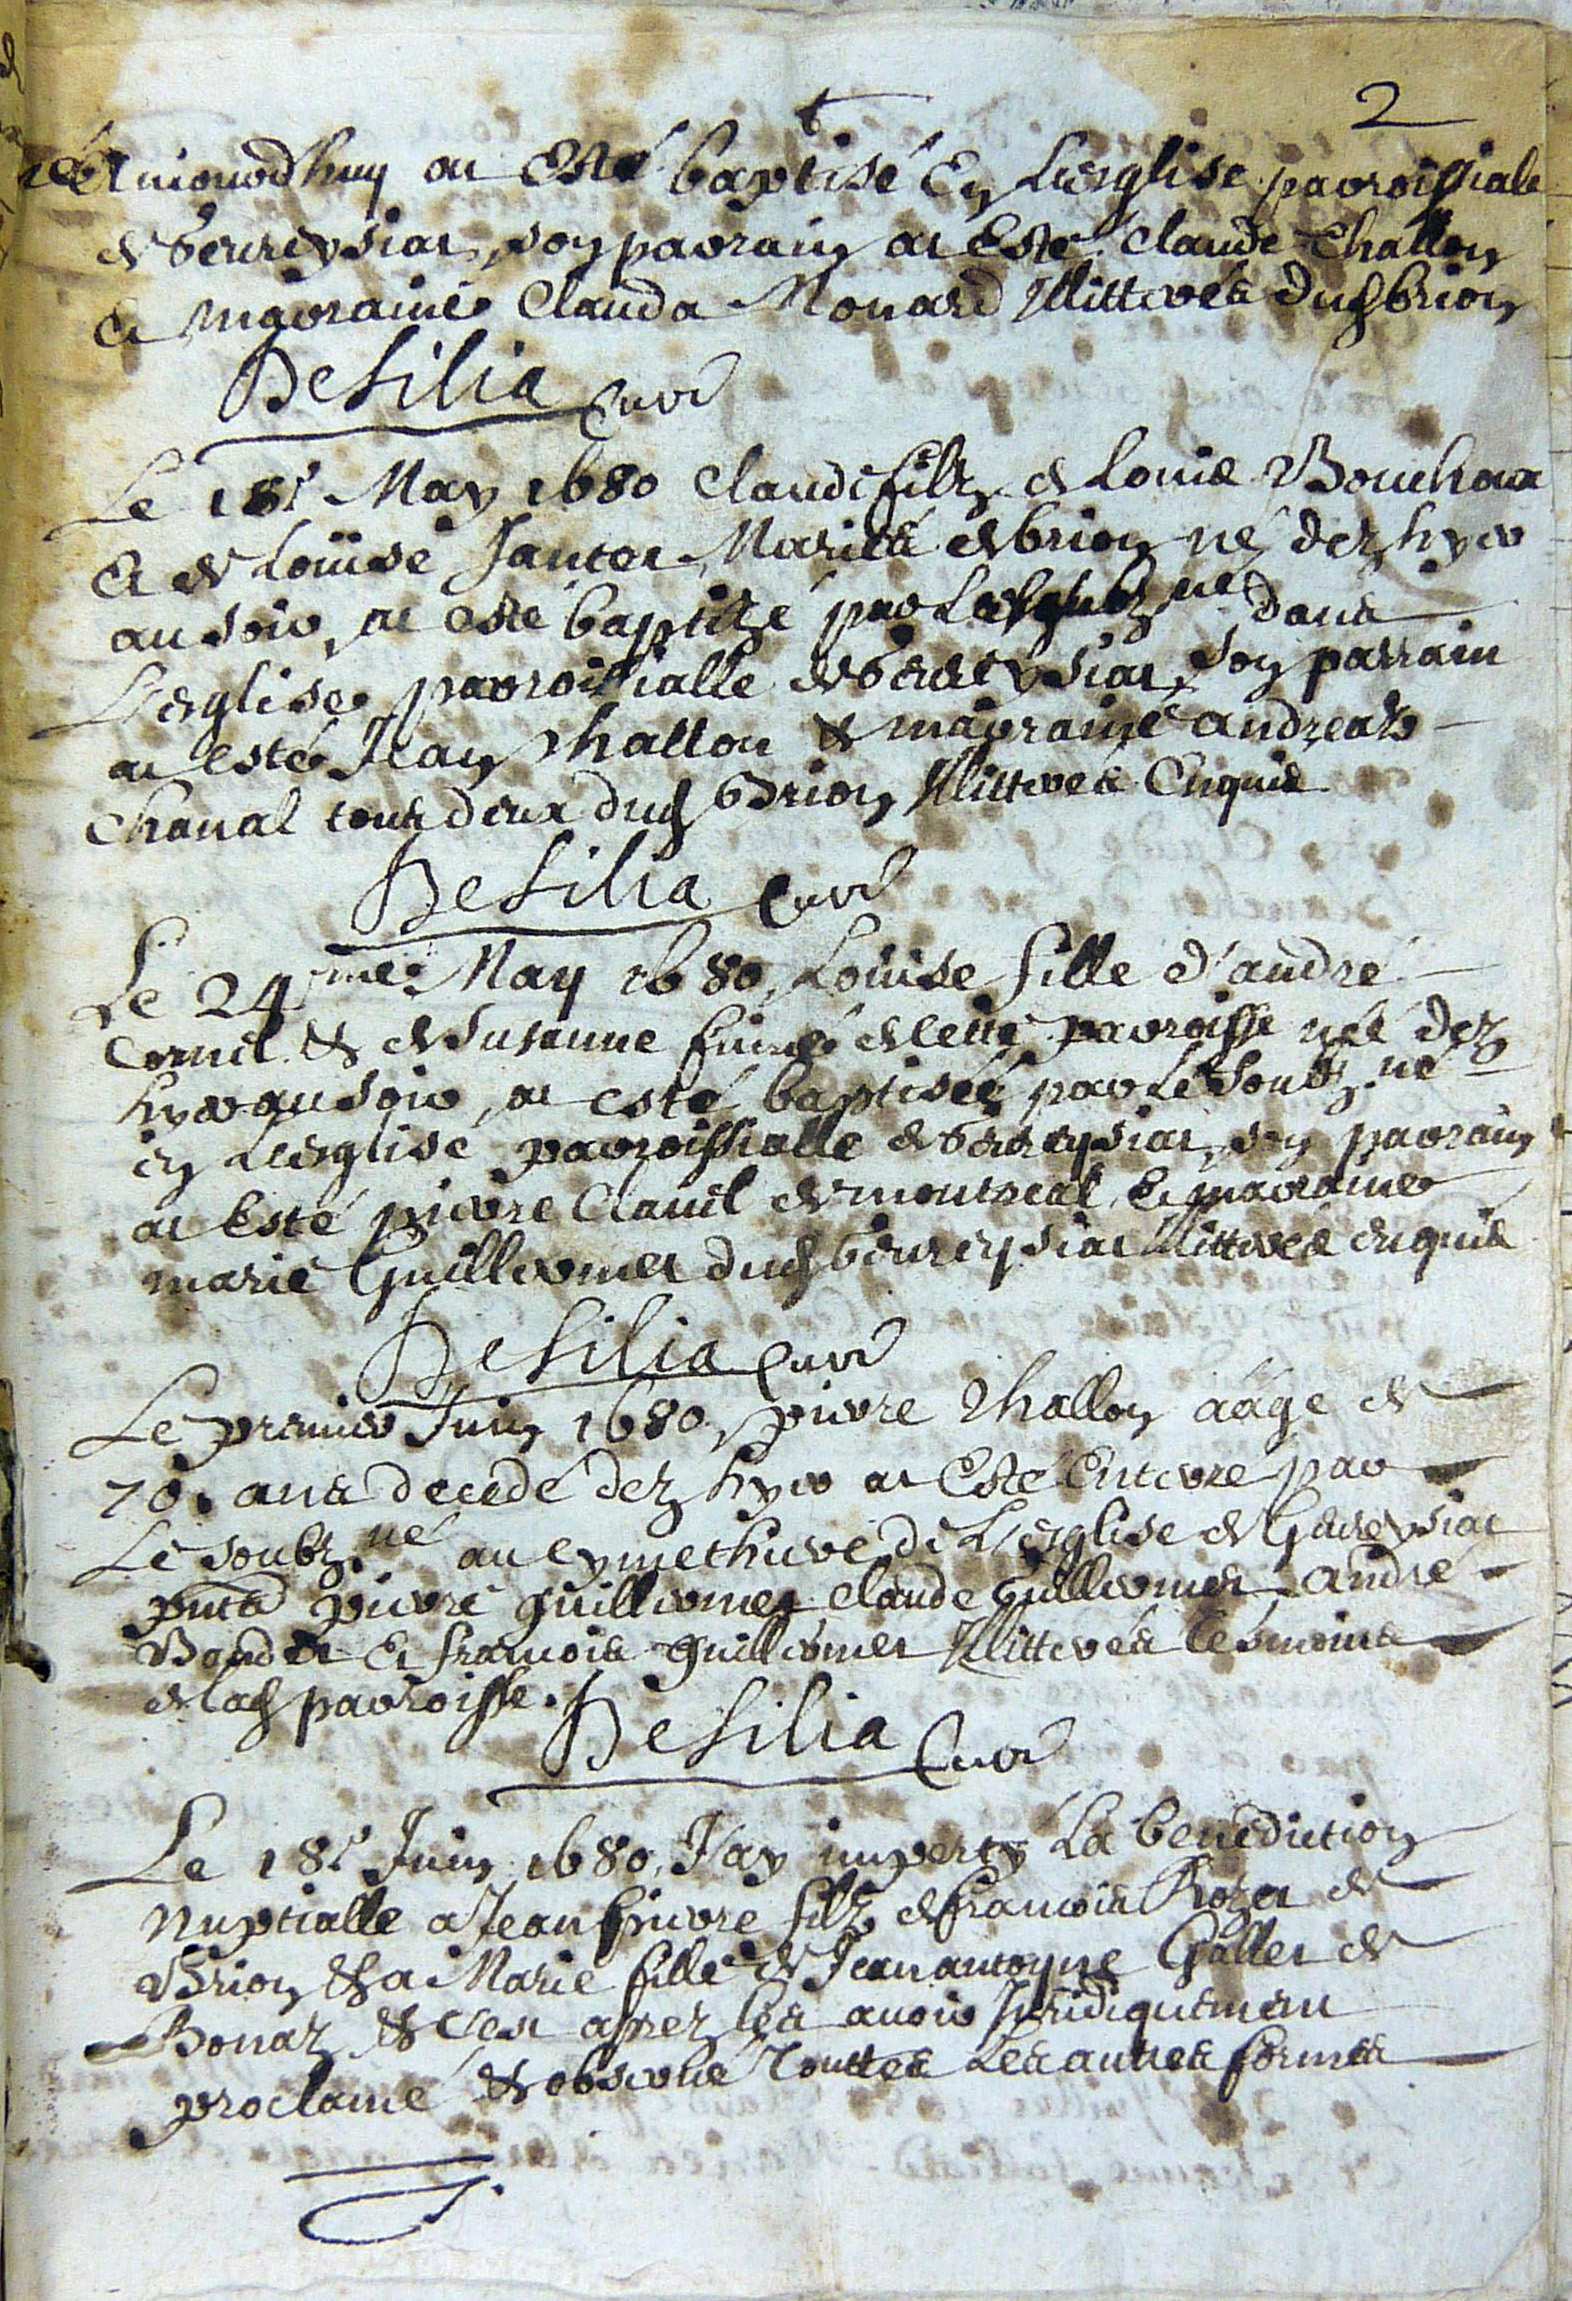 2
né Aujourdhuy at Esté baptisé En L'esglise parroissiale
de bereysiat, son parrain at Esté Claude Challon
Et marraine Clauda Monard Illitterés dud brion
Desilia Curé
Le 18e May 1680 Claude filz de Louis Bouchoux
Et de Loüise Jantet Mariés de brion né dez hyer
au soir, at esté baptizé par Le soubz né dans
L'esglise parroissialle de bereysiat, son parrain
at esté Jean Challon & marraine andreaz
Chanal tous deux dud Brion Illitterés Enquis
Desilia Curé
Le 24me May 1680, Loüise fille d'andré
Cornil & de Susanne de cette parroisse née dez
hyer au soir, at esté baptisée par Le soubz né
en L'esglise parroissialle de bereysiat, son parrain
at Esté pierre de montreal Et marraine
marie Guillermet dud bereysiat Illitterés enquis
Desilia Curé
Le premier Juin 1680, pierre Challon aâgé de
70. ans decedé dez hyer at Esté Enterré par
Le soubz né au cymethiere de L'esglise de Gereysiat
pnts pierre guillermet Claude Guillermet, andré
Et francois guillermet Illiterés tesmoins
de lad parroisse.
Desilia Curé
Le 18e Juin 1680, J'ay imperty La benediction
Nuptialle a Jean pierre filz de francois Rozet de
Brion & a Marie fille de Jean antoyne Gallet de
Bonaz & c'est aprez les avoir Juridiquement
proclamé & observé Touttes Les autres formes